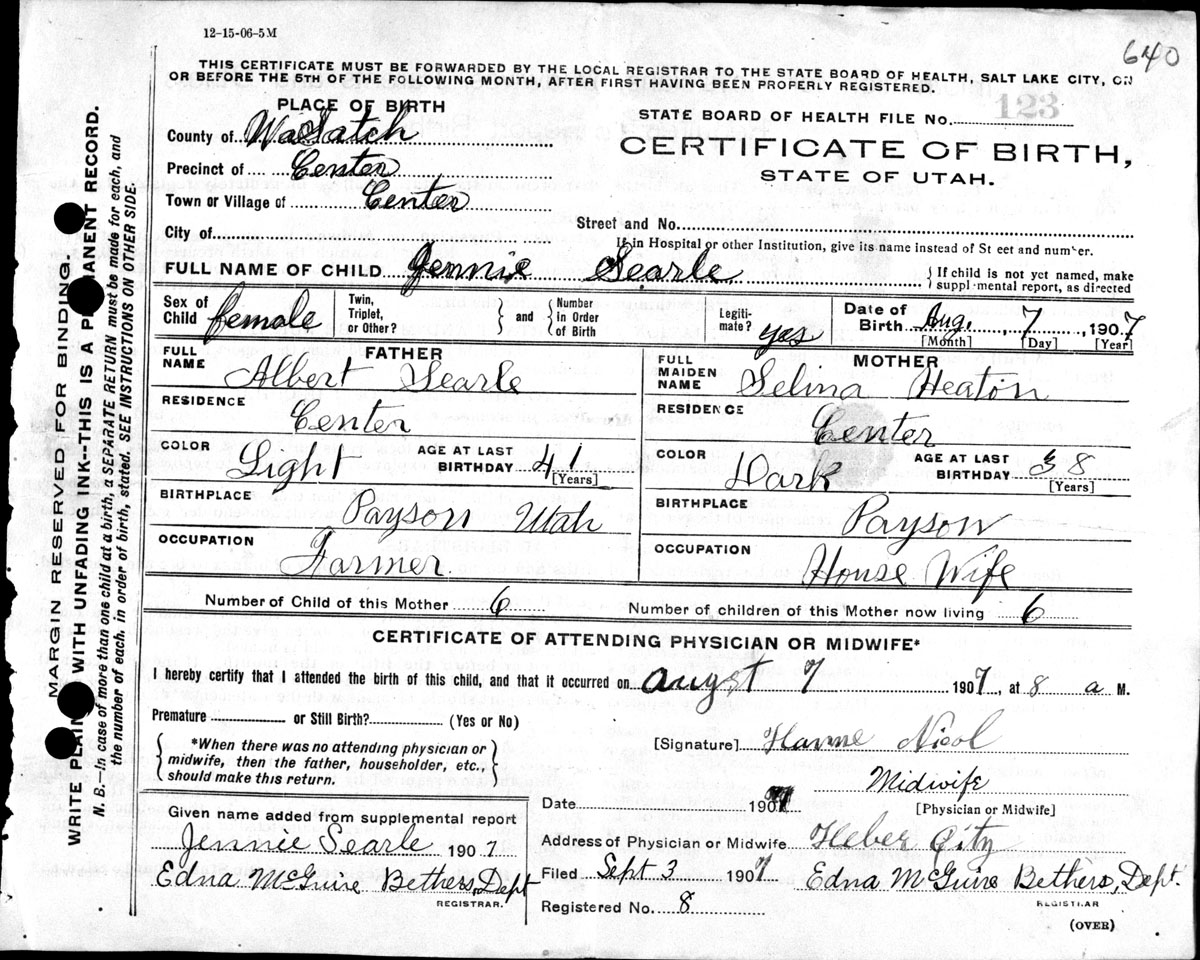 12-15-06-5M
640
THIS CERTIFICATE MUST BE FORWARDED BY THE LOCAL REGISTRAR TO THE STATE BOARD OF HEALTH, SALT LAKE CITY, ON
OR BEFORE THE 5TH OF THE FOLLOWING MONTH, AFTER FIRST HAVING BEEN PROPERLY REGISTERED.
PLACE OF BIRTH
STATE BOARD OF HEALTH FILE No. 123
County of Wasatch
CERTIFICATE OF BIRTH,
Precinct of Center
STATE OF UTAH.
Town or Village of Center
Street and No.
City of
If in Hospital or other Institution, give its name instead of St eet and number.
FULL NAME OF CHILD Jennie Searle
{ If child is not yet named, make
supplemental report, as directed
Sex of Child female
Twin, Triplet, or Other? } and { Number in Order of Birth
Legiti- mate? yes
Date of Birth Aug. 7, 1907
[Month] [Day] [Year]
FATHER
FULL NAME Albert Searle
MOTHER
FULL MAIDEN NAME Selina Heaton
RESIDENCE Center
RESIDENCE Center
COLOR Light AGE AT LAST BIRTHDAY 41 [Years]
COLOR Dark AGE AT LAST BIRTHDAY 38 [Years]
BIRTHPLACE Payson Utah
BIRTHPLACE Payson
OCCUPATION Farmer.
OCCUPATION House Wife
Number of Child of this Mother 6
Number of children of this Mother now living 6
CERTIFICATE OF ATTENDING PHYSICIAN OR MIDWIFE*
I hereby certify that I attended the birth of this child, and that it occurred on augst 7 1907, at 8 a M.
Premature or Still Birth? (Yes or No)
{ *When there was no attending physician or
midwife, then the father, householder, etc.,
should make this return. }
[Signature] Nicol
Midwife
[Physician or Midwife]
Date 1907
Given name added from supplemental report
Jennie Searle 1907
Address of Physician or Midwife Heber City
Edna McGuire Bethers, Dept
REGISTRAR.
Filed Sept 3 1907 Edna McGuire Bethers, Dept.
REGISTRAR
Registered No. 8
(OVER)
MARGIN RESERVED FOR BINDING.
WRITE PLAIN WITH UNFADING INK--THIS IS A P MANENT RECORD.
N. B.—In case of more than one child at a birth, a SEPARATE RETURN must be made for each, and
the number of each, in order of birth, stated. SEE INSTRUCTIONS ON OTHER SIDE.